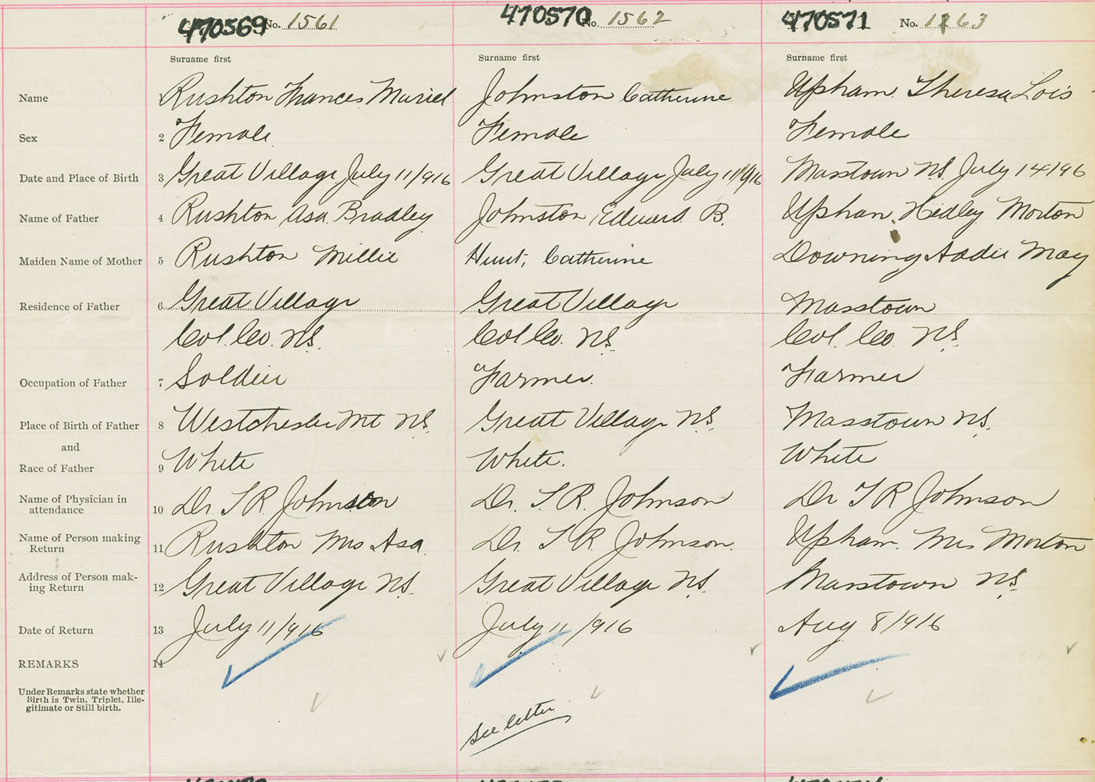 470569 No. 1561 470570 No. 1562 470571 No. 1763
Surname first Surname first Surname first
Name Rushton Frances Muriel Johnston Catherine Upham Theresa Lois
Sex 2 Female Female Female
Date and Place of Birth 3 Great Village July 11/916 Great Village July 11/916 Masstown NS July 14 /96
Name of Father 4 Rushton Asa Bradley Johnston Edward B. Upham, Hedley Morton
Maiden Name of Mother 5 Rushton Millie Hunt, Catherine Downing Addie May
Residence of Father 6 Great Village Great Village Masstown
Col. Co. NS. Col. Co. NS. Col. Co. NS.
Occupation of Father 7 Soldier Farmer. Farmer
Place of Birth of Father 8 Westchester Mt NS. Great Village NS. Masstown NS.
and
Race of Father 9 White White. White
Name of Physician in
attendance 10 Dr. T R Johnson Dr. T. R. Johnson Dr T R Johnson
Name of Person making
Return 11 Rushton Mrs Asa. Dr. T R Johnson. Upham. Mrs Morton
Address of Person mak-
ing Return 12 Great Village NS. Great Village NS. Masstown NS.
Date of Return 13 July 11/916 July 11/916 Aug 8/916
REMARKS 14
Under Remarks state whether
Birth is Twin, Triplet, Ille-
gitimate or Still birth.
See letter